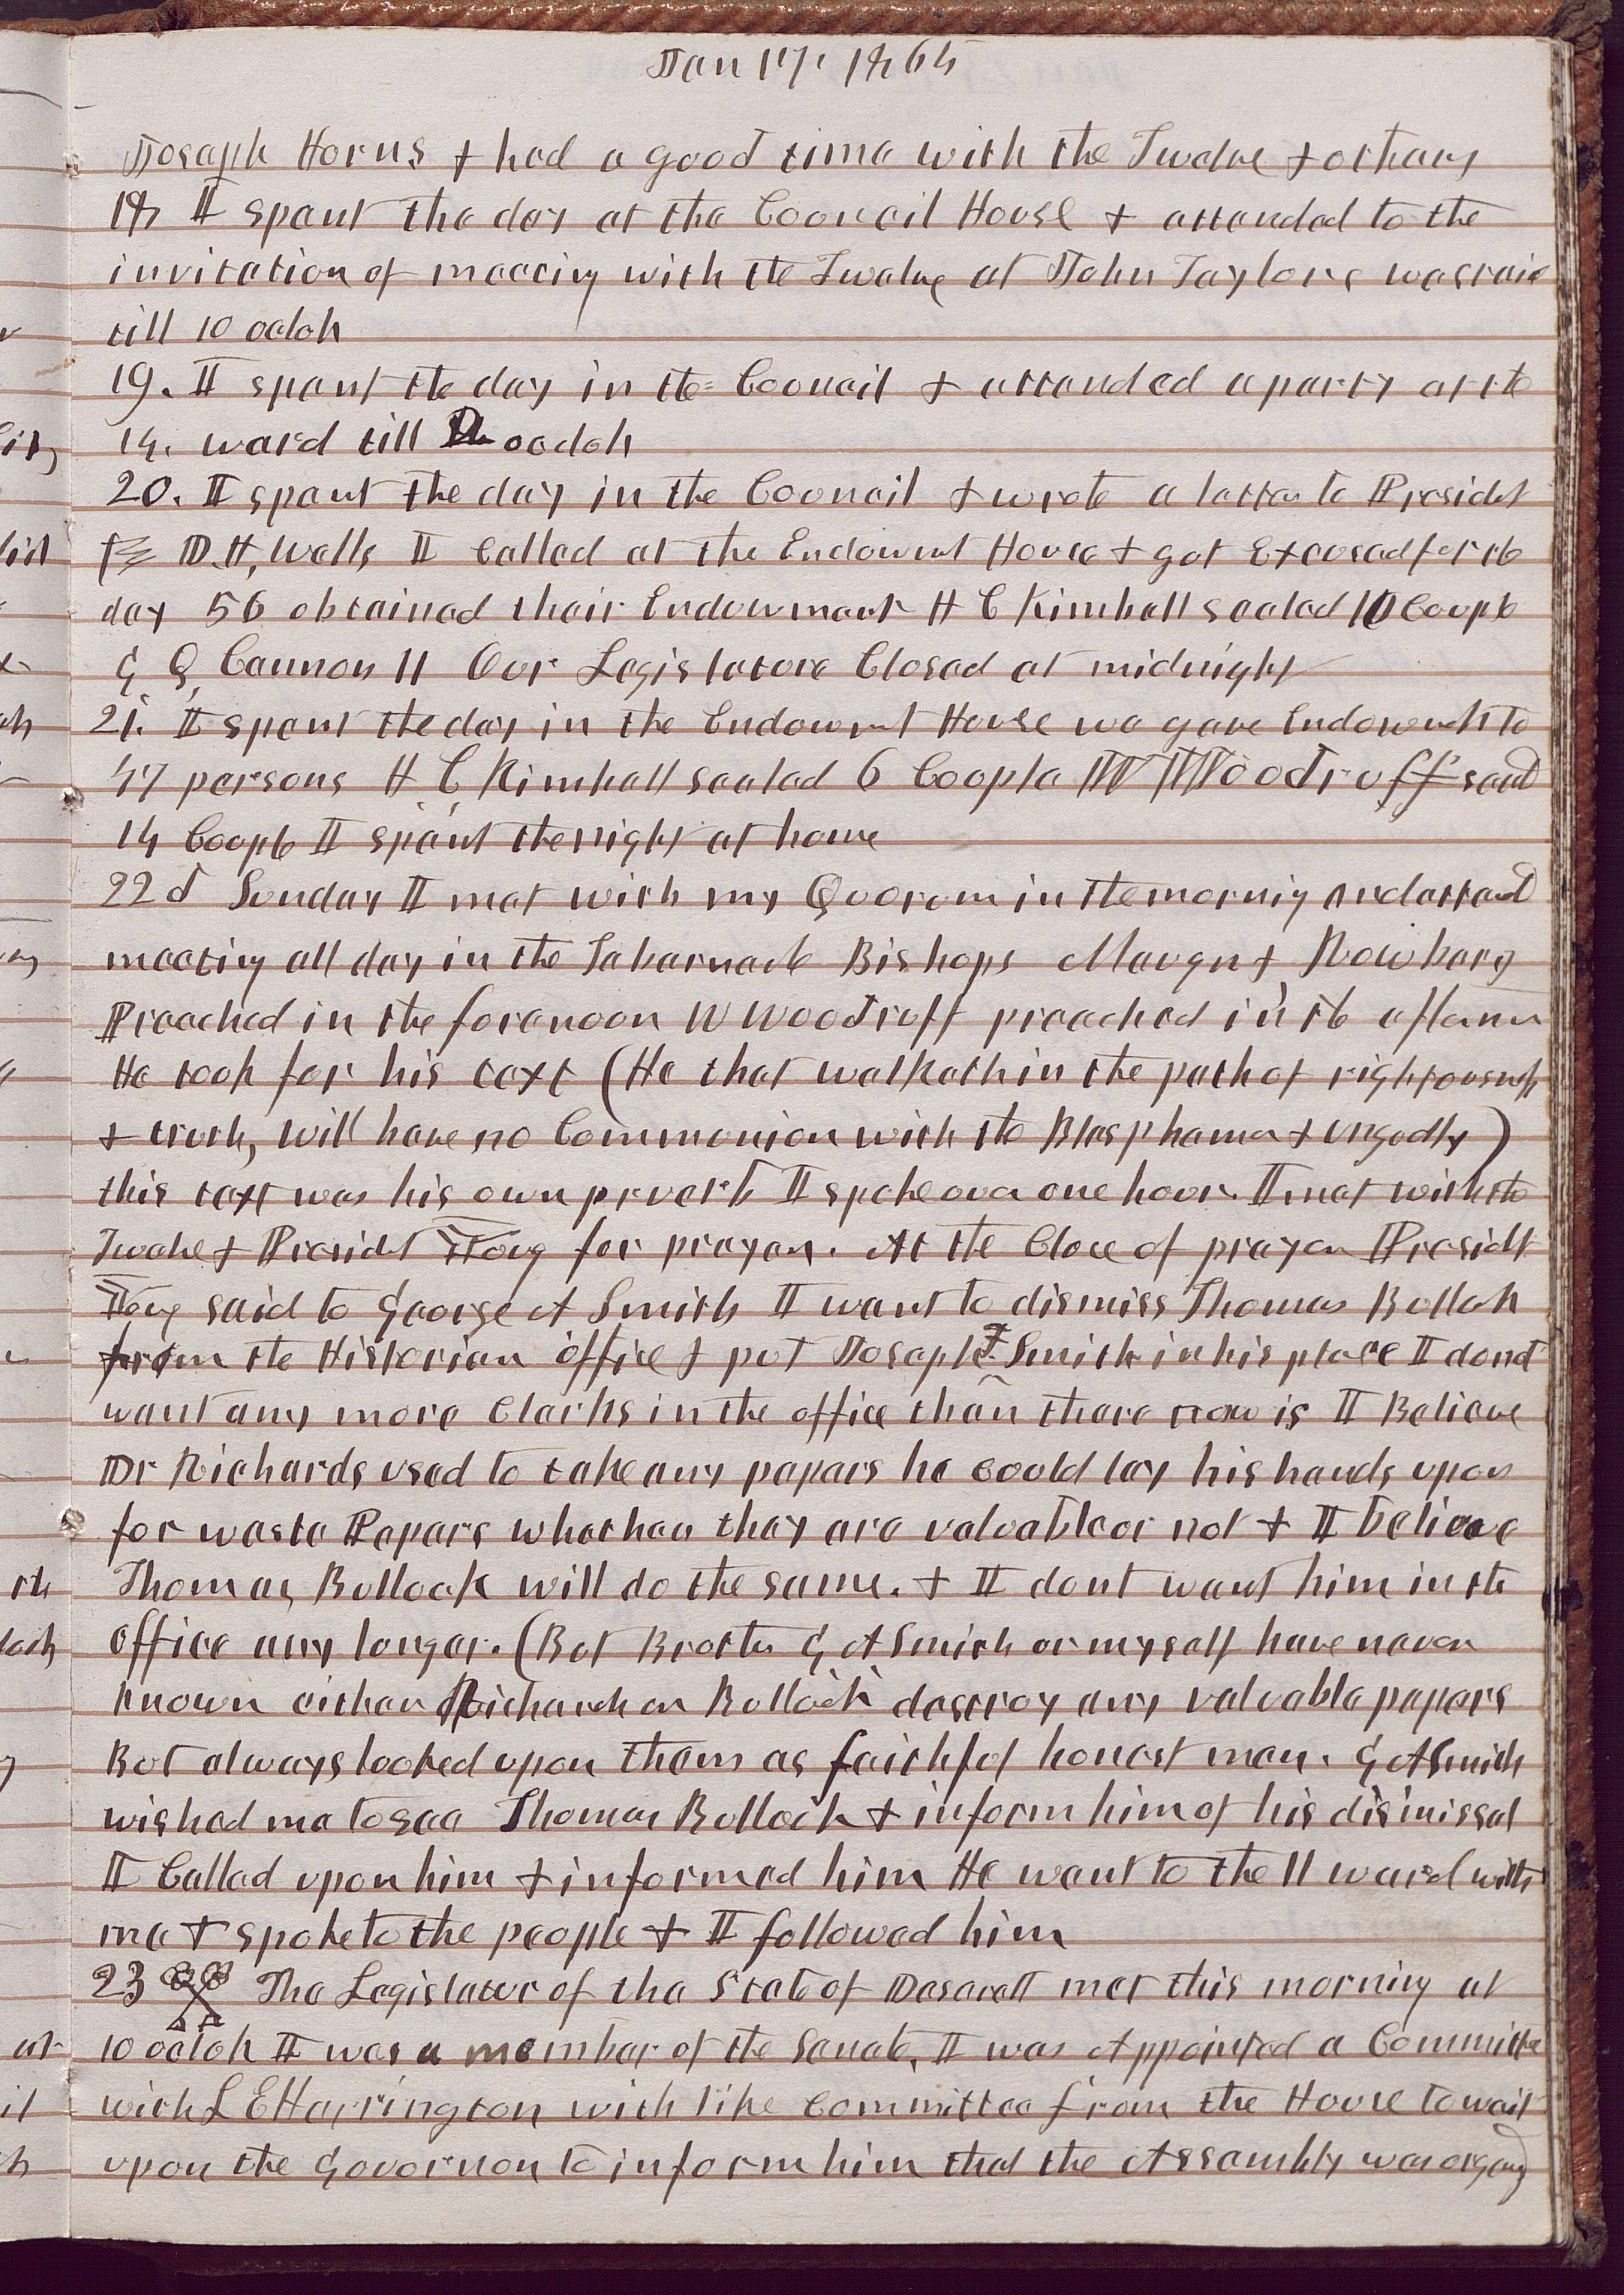 Jan 17. 1865
Joseph Horns & had a good time with the Twelve & others
18 I spent the day at the Council House & attended to the
invitation of meeting with the Twelve at John Taylors
till 10 oclok
19. I spent the day in the Council & attended a party at the
14. ward till oclok
20. I spent the day in the Council & wrote a letter to Presidet
D. H. Wells I Called at the Endowmt House & got Excused for the
day 56 obtained their Endowment H C Kimball sealed 10 Couple
G Q Cannon 11 Our Legislature Closed at midnight
21. I spent the day in the Endowmt House we gave Endowmets to
47 persons H C Kimball sealed 6 Couple W Woodruff seald
14 Couple I spent the night at home
22d Sunday I met with my Quorum in the mornig and attend
meeting all day in the Tabernacle Bishops Maugn &
Preached in the forenoon W Woodruff preached in the afternn
He took for his text (He that walketh in the path of rightousness
& truth, will have no Communion with the Blasphemer & ungodly)
this text was his own prverb I spoke over one hour. I met with the
Twelve & Presidet Yong for prayer. At the Close of prayer Presidt
Yong said to George A Smith I want to dismiss Thomas Bullok
from the Historian office & put Joseph F. Smith in his place I dont
want any more Clerks in the office than there now is I Believe
Dr Richards used to take any papers he could lay his hands upon
for waste Papers whether they are valuable or not & I believe
Thomas Bullock will do the same. & I dont want him in the
office any longer. (But Brother G A Smith or myself have never
known either Richards or Bullock destroy any valuable papers
But always looked upon them as faithful honest men. G A Smith
wished me to see Thomas Bullock & inform him of his dismissal
I Called upon him & informed him He went to the 11 ward with
me & spoke to the people & I followed him
23 The Legislatur of the State of Deserett met this morning at
10 oclok I was a member of the Senate, I was Appointed a Committe
with L E Harrington with like committee from the House to wait
upon the Governor to inform him that the Assembly was